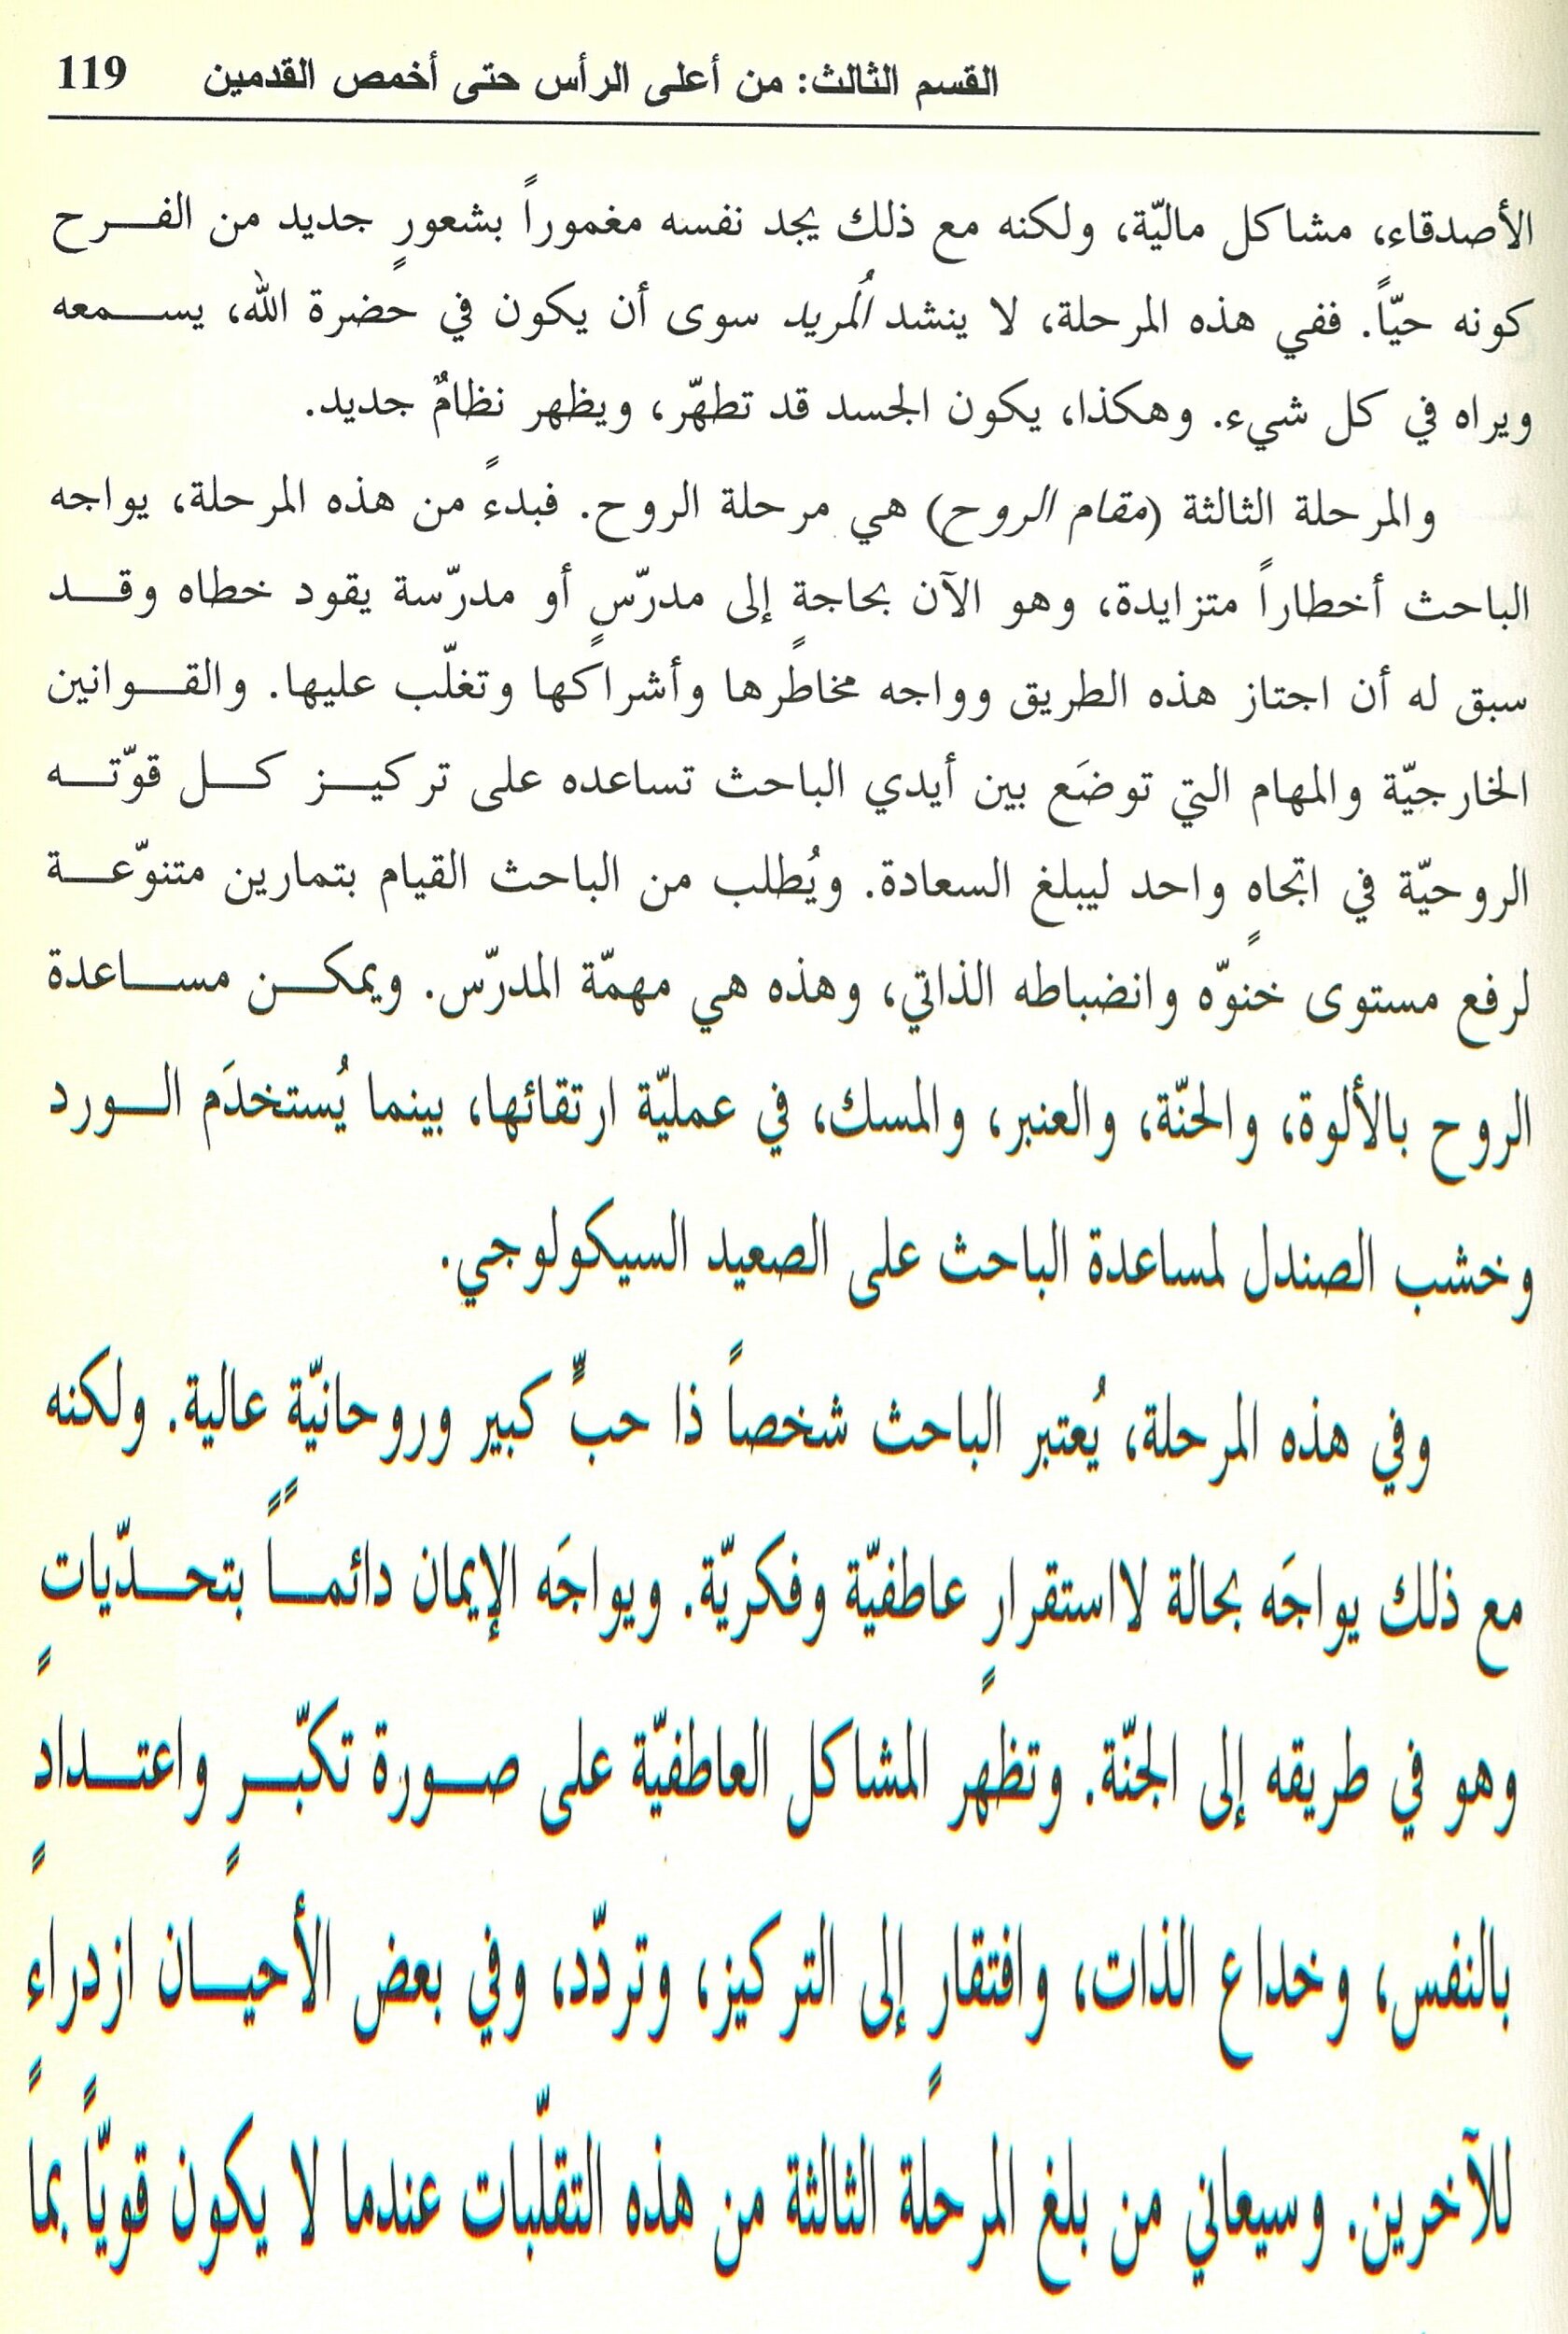 القسم الثالث: من أعلى الرأس حتى أخمص القدمين 119
الأصدقاء، مشاكل ماليّة، ولكنه مع ذلك يجد نفسه مغموراً بشعورٍ جديد من الفرح
كونه حيّاً. ففي هذه المرحلة، لا ينشد المُريد سوى أن يكون في حضرة الله، يسمعه
ويراه في كل شيء. وهكذا، يكون الجسد قد تطهّر، ويظهر نظامٌ جديد.
والمرحلة الثالثة (مقام الروح) هي مرحلة الروح. فبدءً من هذه المرحلة، يواجه
الباحث أخطاراً متزايدة، وهو الآن بحاجةٍ إلى مدرّسٍ أو مدرّسة يقود خطاه وقد
سبق له أن اجتاز هذه الطريق وواجه مخاطرها وأشراكها وتغلّب عليها. والقوانين
الخارجيّة والمهام التي توضَع بين أيدي الباحث تساعده على تركيز كل قوّته
الروحيّة في اتجاهٍ واحد ليبلغ السعادة. ويُطلب من الباحث القيام بتمارين متنوّعة
لرفع مستوى حنوّه وانضباطه الذاتي، وهذه هي مهمّة المدرّس. ويمكن مساعدة
الروح بالألوة، والحنّة، والعنبر، والمسك، في عمليّة ارتقائها، بينما يُستخدَم الورد
وخشب الصندل لمساعدة الباحث على الصعيد السيكولوجي.
وفي هذه المرحلة، يُعتبر الباحث شخصاً ذا حبٍّ كبير وروحانيّة عالية. ولكنه
مع ذلك يواجَه بحالة لااستقرارٍ عاطفيّة وفكريّة. ويواجَه الإيمان دائماً بتحدّياتٍ
وهو في طريقه إلى الجنّة. وتظهر المشاكل العاطفيّة على صورة تكبّرٍ واعتدادٍ
بالنفس، وخداع الذات، وافتقارٍ إلى التركيز، وتردّد، وفي بعض الأحيان ازدراءٍ
للآخرين. وسيعاني من بلغ المرحلة الثالثة من هذه التقلّبات عندما لا يكون قويّاً بما